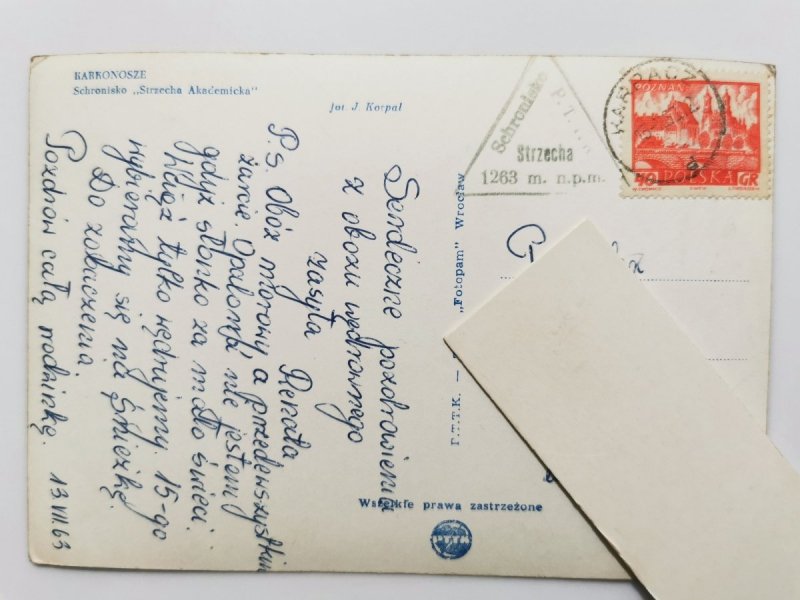 KARKONOSZE
Schronisko „Strzecha Akademicka"
fot. J. Korpal
Serdeczne pozdrowienia
z obozu wędrownego
zasyła
Renata
P.S. Obóz morowy a przedewszystkim
żarcie. Opalona nie jestem
gdyż słonko za mało świeci.
Wciąż tylko wędrujemy. 15-go
wybieramy się na Śnieżkę.
Do zobaczenia.
Pozdrów całą rodzinkę. 13.VII.63
P.T.T.K. —
„Fotopam" Wrocław
Wszelkie prawa zastrzeżone
Schronisko
Strzecha
1263 m. n.p.m.
KARPACZ
POZNAŃ
POLSKA
GR